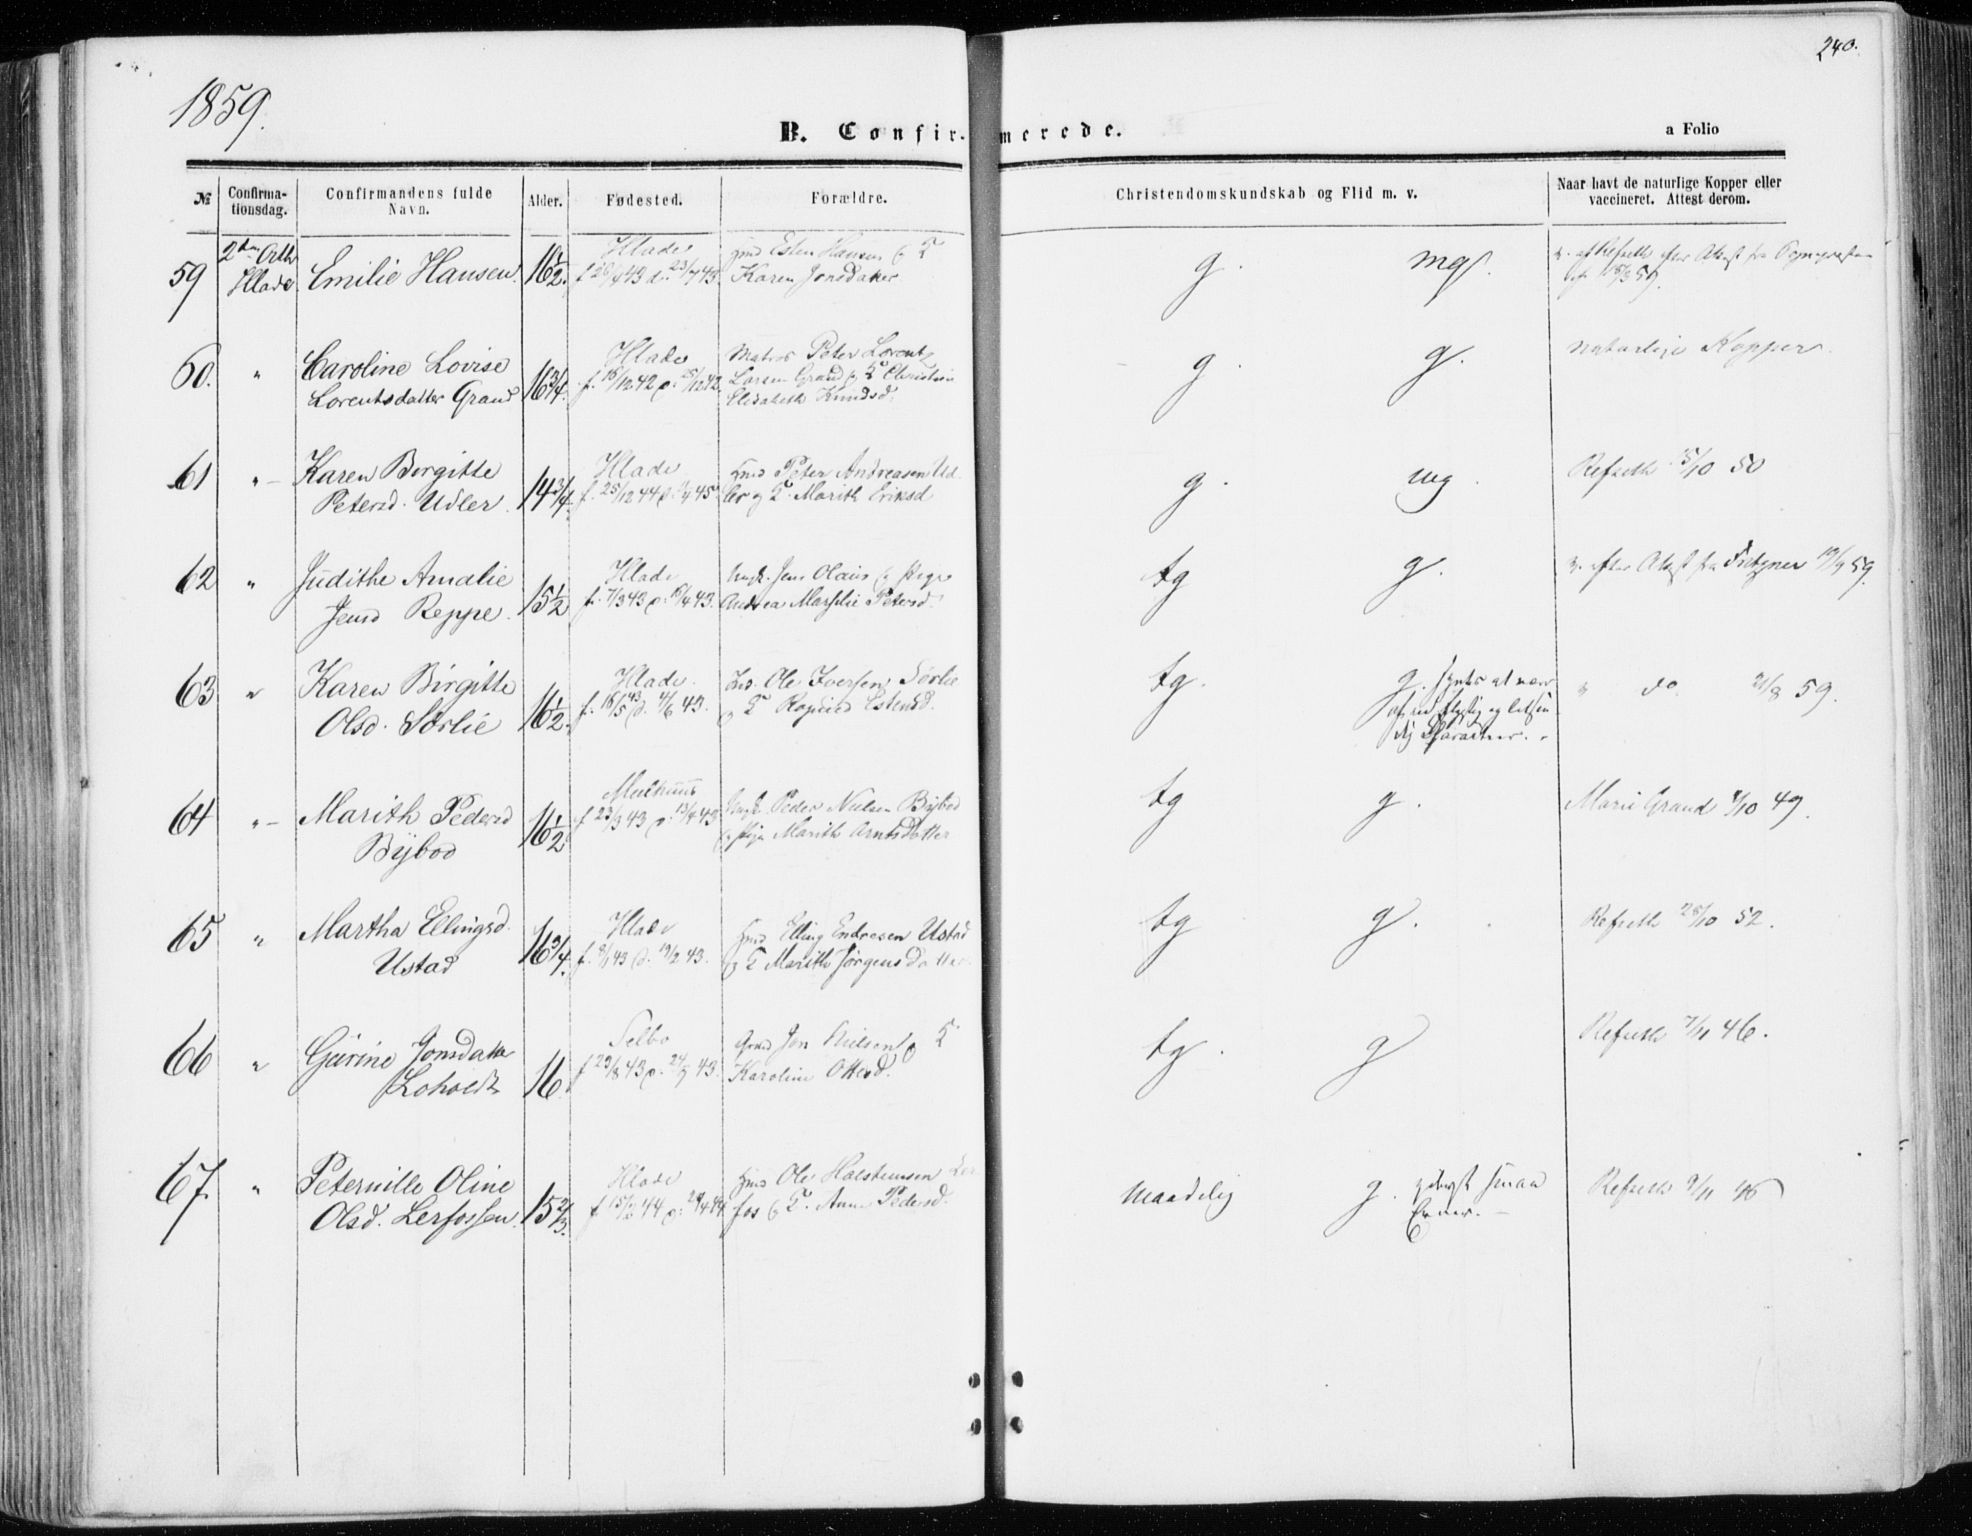 240.
1859.
B. Confirmerede.
a Folio
№ Confirma-tionsdag. Confirmandens fulde Navn. Alder. Fødested. Forældre. Christendomskundskab og Flid m. v. Naar havt de naturlige Kopper eller vaccineret. Attest derom.
59 2den Octbr Hlade Emilie Hansen 16½. Hlade Hmd Esten Hansen og K Karen Jonsdatter g. mg.
60. " Caroline Lovise Lorentsdatter Grand 16¾. Hlade f. 16/12 42 d. 25/12 42. Matros Peter Lorentz Larsen Grand og K Christine Elisabeth Knudsd. g. g. naturlige Kopper.
61 " Karen Birgitte Petersd. Udler. 14¾. Hlade f. 25/12 44 Hmd Peter Andreasen Udler og K. Marith Eriksd g. mg. Refseth 15/10 50
62 " Judithe Amalie Jensd Reppe. 15½ Hlade f. 7/3 43 d. 19/4 43. Ungk. Jens Olaus og Pige Andrea Petersd. tg g. v. efter Attest fra 19/9 59.
63 " Karen Birgitte Olsd. Sørlie 16½. Hlade. f. 16/5 43 d. 4/6 43. Ole Iversen Sørlie og K Ragnild Estensd. tg. g. synts at være af en og letsindig Character. " do 21/8 59.
64 " Marith Pedersd Bÿbod 16½ Meelhuus f 23/3 43 d. 13/4 43 Ungk Peder Nielsen Bÿbod og Pige Marith Arntsdatter tg g. Marie Grand /10 49.
65 " Martha Ellingsd. Ustad 16¾. Hlade f. 8/1 43 d. 19/2 43. Hmd Elling Endresen Ustad og K Marith Jørgensdatter tg g. Refseth 28/10 52.
66 " Gurine Jonsdatter Loholdt 16 Selbo f 29/8 43 d. 24/9 43. Jon Nielsen og K Karoline Ottersd. tg. g Refseth 7/11 46.
67. " Peternille Oline Olsd. Lerfossen. 15⅔. Hlade Hmd Ole Halstensen Lerfos og K. Anne Pedersd. Maadelig g. yderst smaa Evner. Refseth 9/11 46